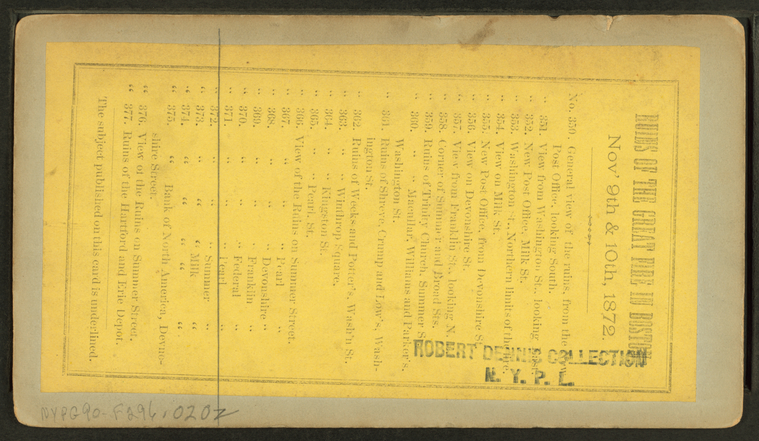 RUINS OF THE GREAT FIRE IN BOSTON
Nov' 9th & 10th, 1872.
No. 350. General view of the ruins, from the
Post Office, looking South.
" 351. View from Washington St., looking
" 352. New Post Office, Milk St.
" 353. Washington St., Northern limits of the
" 354. View on Milk St.
" 355. New Post Office, from Devonshire St.
" 356. View on Devonshire St.
" 357. View from Franklin St., looking N.
" 358. Corner of Summer and Broad Sts.
" 359. Ruins of Trinity Church, Summer St.
" 360. " " Macullar, Williams and Parker's,
Washington St.
" 361. Ruins of Shreve, Crump and Low's, Wash-
ington St.
" 362. Ruins of Weeks and Potter's, Wash'n St.
" 363. " " Winthrop Square.
" 364. " " Kingston St.
" 365. " " Pearl St.
" 366. View of the Ruins on Summer Street.
" 367. " " " Pearl "
" 368. " " " Devonshire "
" 369. " " " Franklin "
" 370. " " " Federal "
" 371. " " " Pearl "
" 372. " " " Summer "
" 373. " " " Milk "
" 374. " " " "
" 375. " Bank of North America, Devon-
shire Street.
" 376. View of the Ruins on Summer Street.
" 377. Ruins of the Hartford and Erie Depot.
The subject published on this card is underlined.
ROBERT DENNIS COLLECTION
N. Y. P. L.
NYPG90-F396.0202